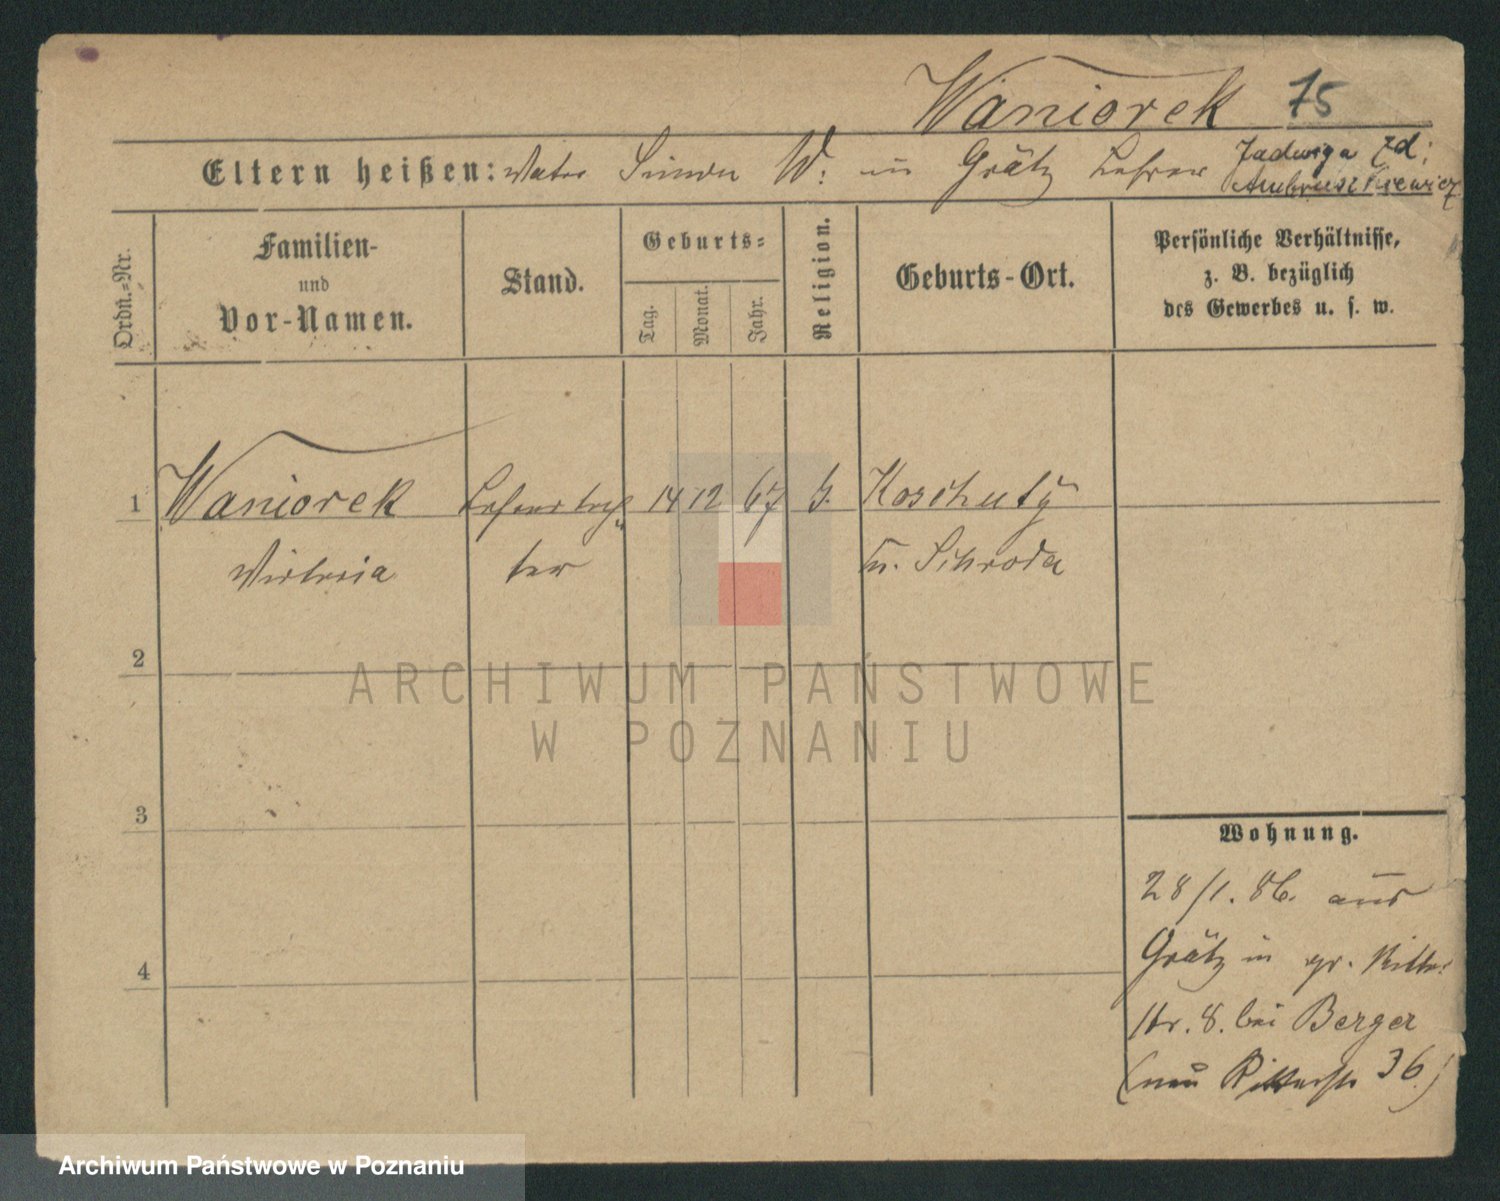 Waniorek 75
Eltern heißen: Vater Simon W: in Grätz Lehrer Jadwiga zd:
Ambroszkiewicz
Ordn.-Nr.
Familien-
und
Vor-Namen.
Stand.
Geburts-
Tag.
Monat.
Jahr.
Religion.
Geburts-Ort.
Persönliche Verhältnisse,
z. B. bezüglich
des Gewerbes u. s. w.
1 Waniorek Lehrertoch 14 12 67 Koschuty
Victoria ter Kr. Schroda
2
ARCHIWUM PAŃSTWOWE
W POZNANIU
3
Wohnung.
28/1. 86. aus
Grätz in gr. Ritter
str. 8. bei Berger
(neu Ritterstr 36.)
4
Archiwum Państwowe w Poznaniu